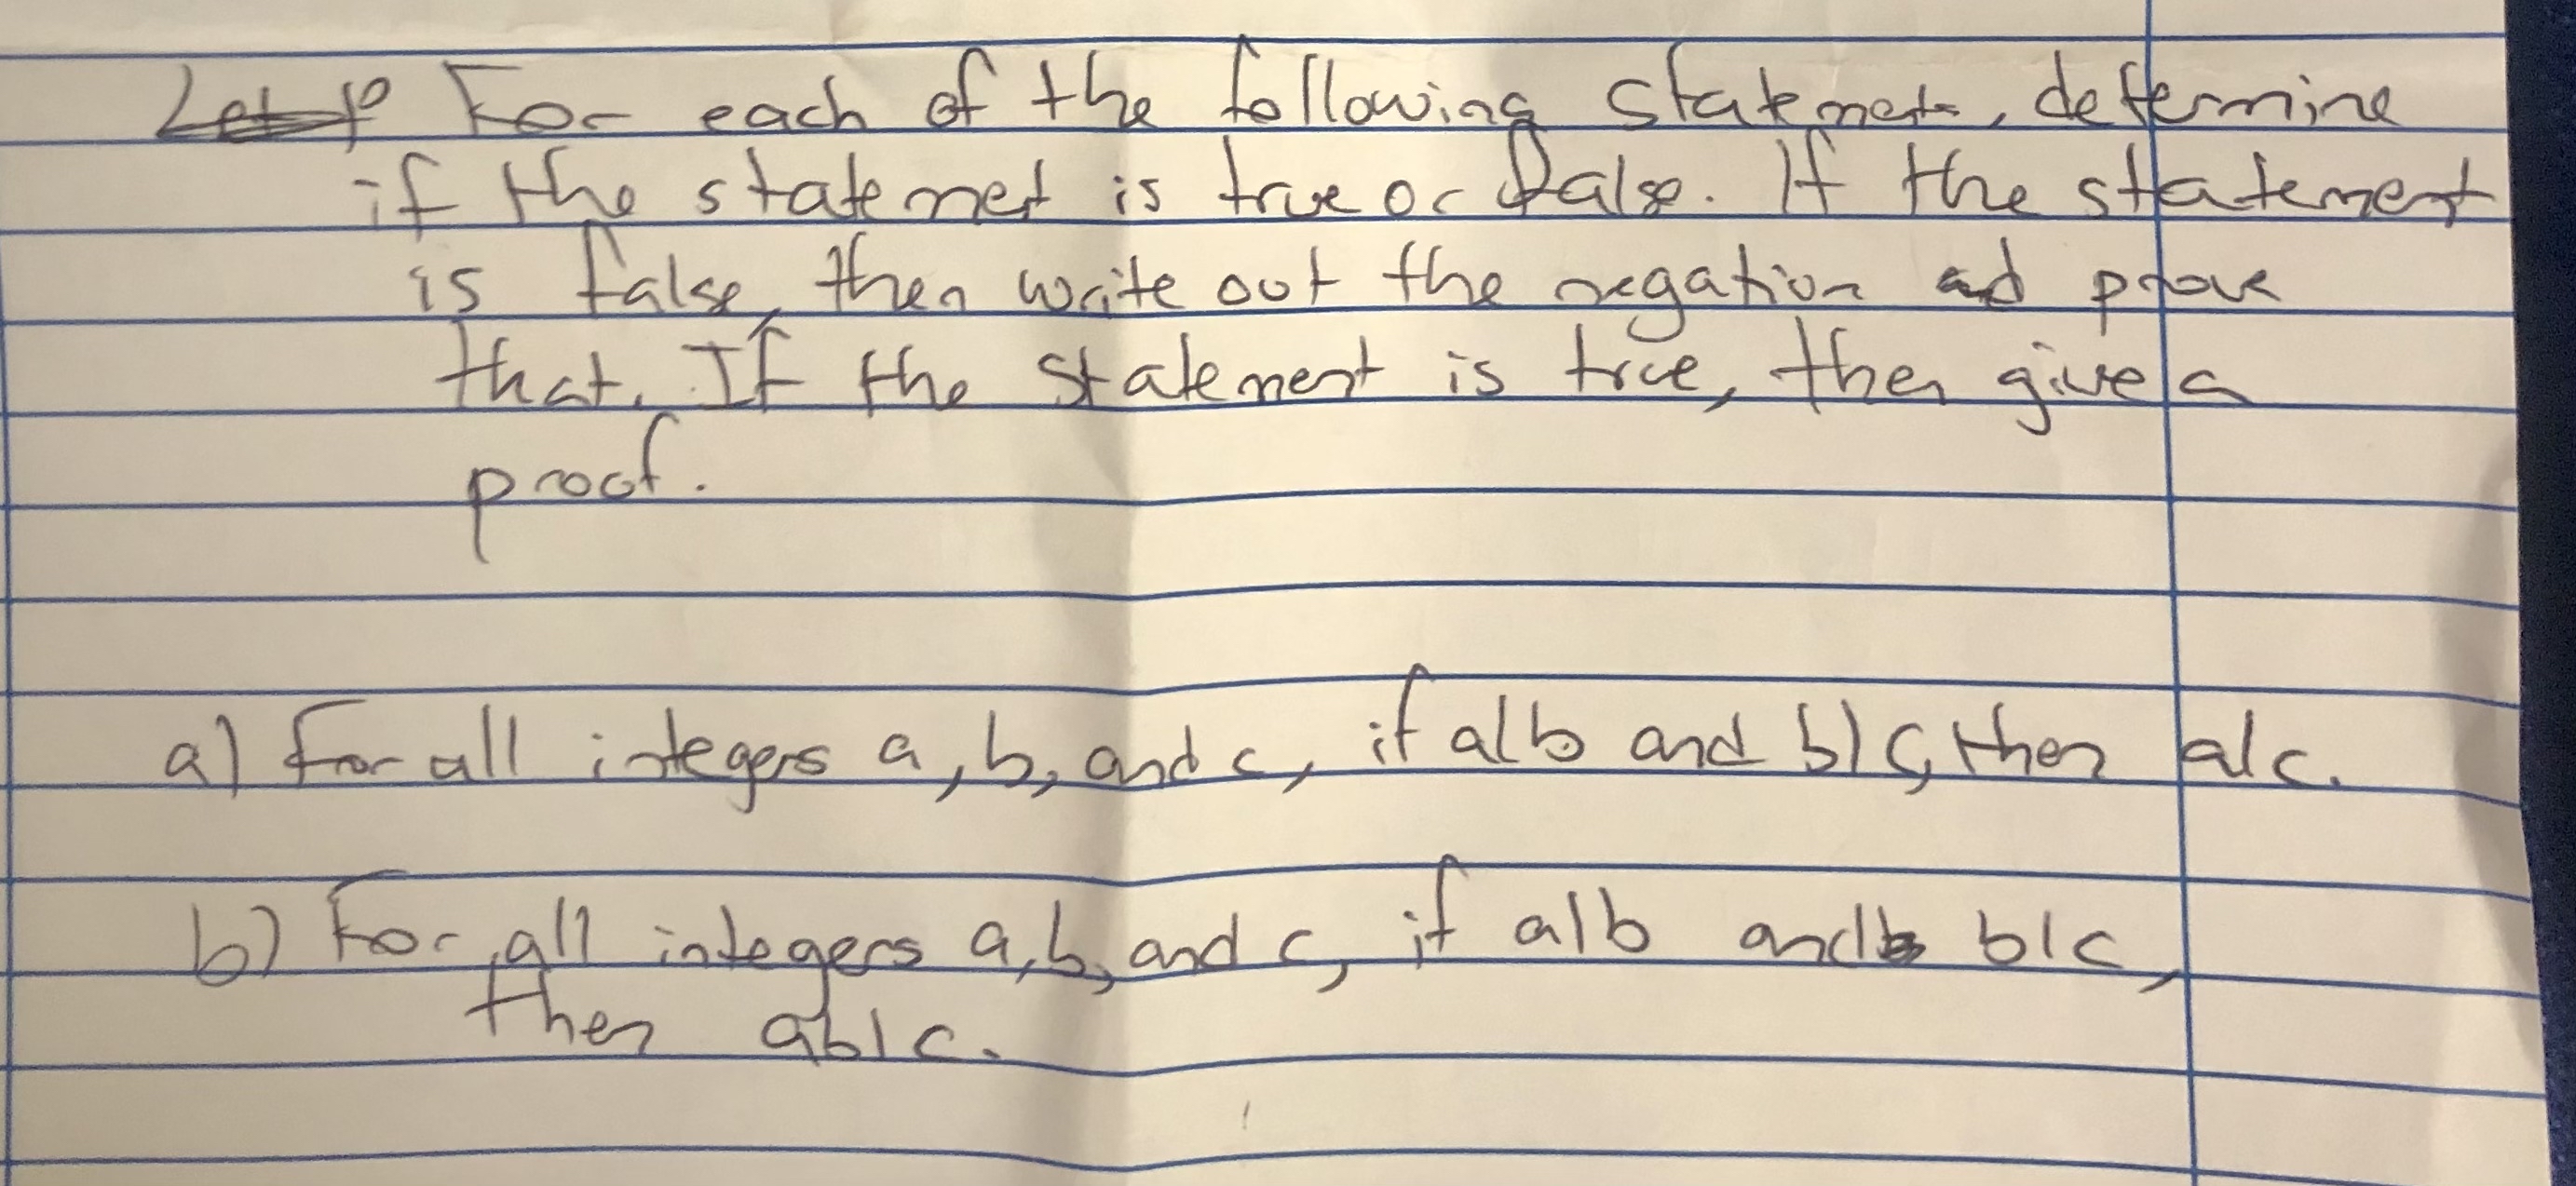 Let p For each of the following statements, determine
if the statemet is true or false. If the statement
is false, then write out the negation and prove
that. If the statement is true, then give a
proof.
a) For all integers a, b, and c, if a|b and b|c, then a|c.
b) For all integers a, b, and c, if a|b and b|c,
then ab|c.